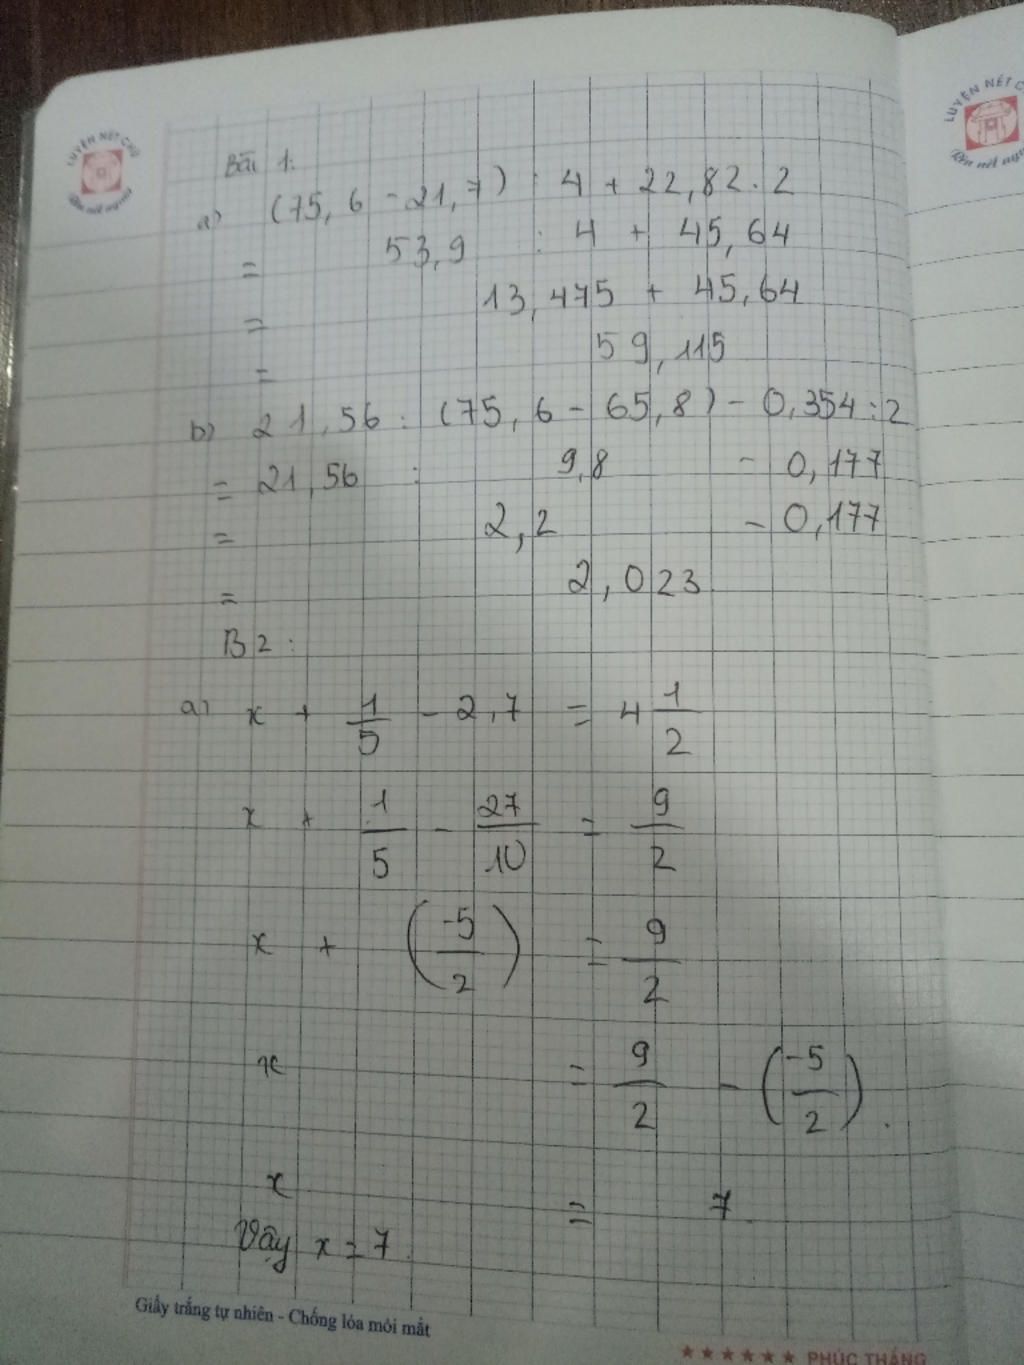 LUYỆN NÉT CHỮ
Rèn nết người
LUYỆN NÉT C
Rèn nết ngư
Bài 1:
a) (75,6 - 21,7) : 4 + 22,82 . 2
= 53,9 : 4 + 45,64
= 13,475 + 45,64
= 59,115
b) 21,56 : (75,6 - 65,8) - 0,354 : 2
= 21,56 : 9,8 - 0,177
= 2,2 - 0,177
= 2,023
B2:
a) x + 1/5 - 2,7 = 4 1/2
x + 1/5 - 27/10 = 9/2
x + (-5/2) = 9/2
x = 9/2 - (-5/2).
x = 7
Vậy x = 7.
Giấy trắng tự nhiên - Chống lóa mỏi mắt
★★★★★★ PHÚC THẮNG